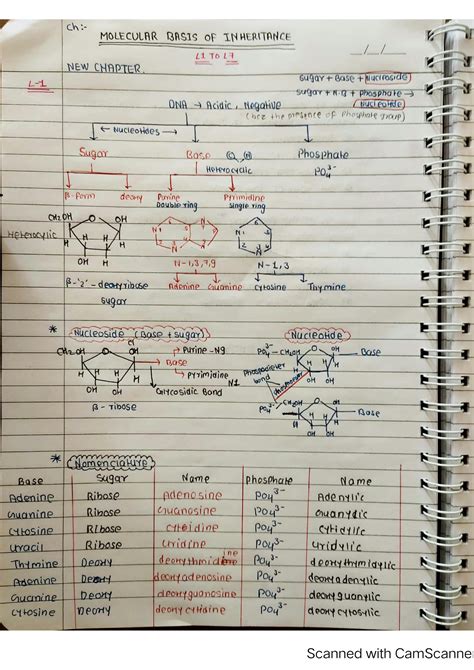 Ch:-
MOLECULAR BASIS OF INHERITANCE
L1 TO L7
NEW CHAPTER.
L-1
Sugar + Base + Nucleoside
Sugar + N.B + Phosphate →
Nucleotide
DNA → Acidic, Negative
(bcz the presence of Phosphate group)
← Nucleotides →
Sugar Base Phosphate
Heterocyclic PO₄³⁻
β-form deoxy Purine Pyrimidine
Double ring Single ring
CH₂OH O OH
Heterocyclic H H H H
OH H
N N
N-1,3,7,9 N-1,3
β-'2'-deoxyribose Adenine Guanine Cytosine Thymine
Sugar
* Nucleoside (Base + Sugar) Nucleotide
CH₂OH O Purine - N9
Base
Pyrimidine N1
Glycosidic Bond
OH OH
β-ribose
PO₄³⁻ CH₂OH O OH Base
bond
PO₄³⁻ CH₂OH O Base
OH OH
* Nomenclature
Base Sugar Name Phosphate Name
Adenine Ribose Adenosine PO₄³⁻ Adenylic
Guanine Ribose Guanosine PO₄³⁻ Guanylic
Cytosine Ribose Cytidine PO₄³⁻ Cytidylic
Uracil Ribose Uridine PO₄³⁻ Uridylic
Thymine Deoxy PO₄³⁻ deoxythymidylic
Adenine Deoxy deoxyadenosine PO₄³⁻ deoxyadenylic
Guanine Deoxy deoxyguanosine PO₄³⁻ deoxyguanylic
Cytosine Deoxy deoxycytidine PO₄³⁻ deoxycytosylic
Scanned with CamScanner